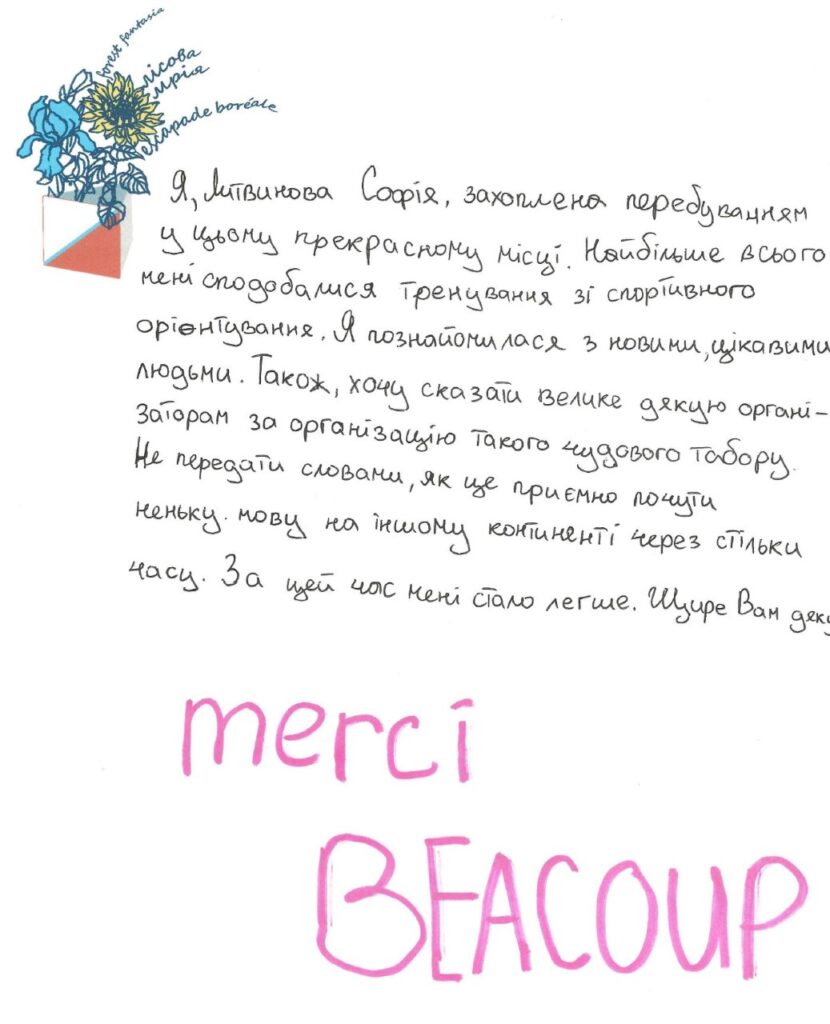 forest fantasia
лісова
мрія
escapade boréale
Я, Литвинова Софія, захоплена перебуванням
у цьому прекрасному місці. Найбільше всього
мені сподобалися тренування зі спортивного
орієнтування. Я познайомилася з новими, цікавими
людьми. Також, хочу сказати велике дякую органі-
заторам за організацію такого чудового табору.
Не передати словами, як це приємно почути
неньку мову на іншому континенті через стільки
часу. За цей час мені стало легше. Щире Вам
mercí
BEACOUP